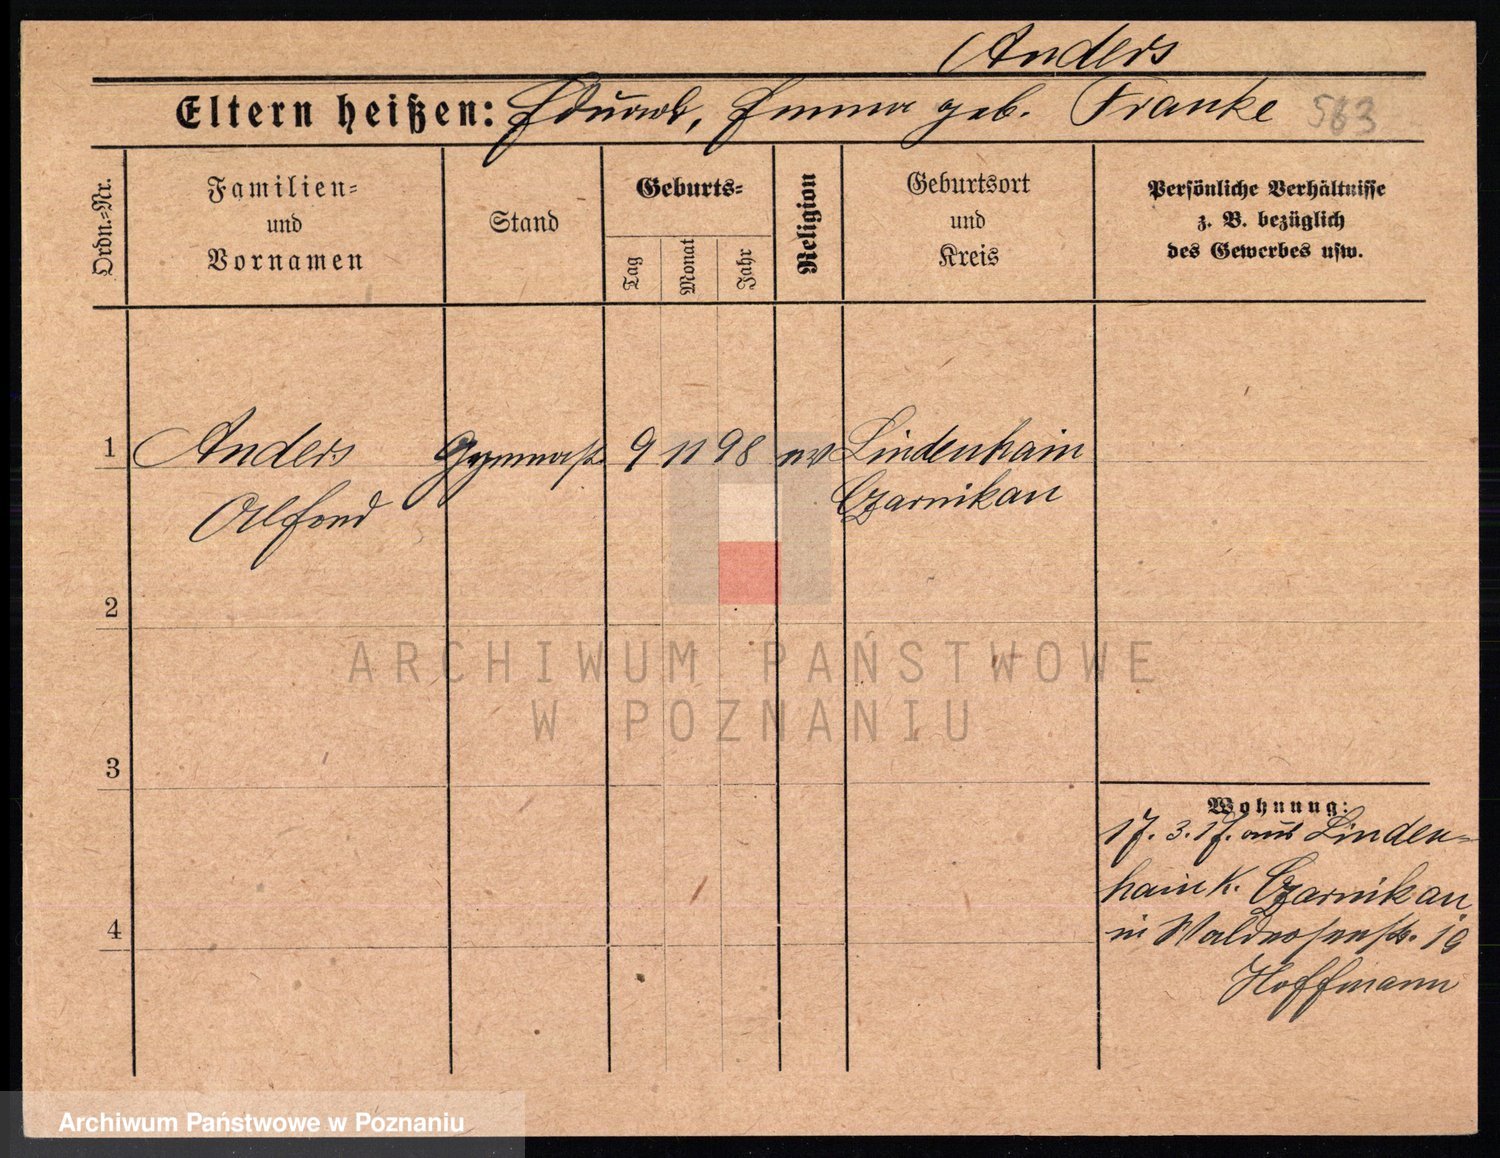 Anders
Eltern heißen: Eduard, Emma geb. Franke 563
Ordn.=Nr.
Familien=
und
Vornamen
Stand
Geburts=
Tag
Monat
Jahr
Religion
Geburtsort
und
Kreis
Persönliche Verhältnisse
z. B. bezüglich
des Gewerbes usw.
1 Anders Gymnast. 9 11 98 ev Lindenhain
Alfred Czarnikau
2
ARCHIWUM PAŃSTWOWE
W POZNANIU
3
Wohnung:
17. 3. 17. aus Linden=
hain K. Czarnikau
4
in 19
Hoffmann
Archiwum Państwowe w Poznaniu